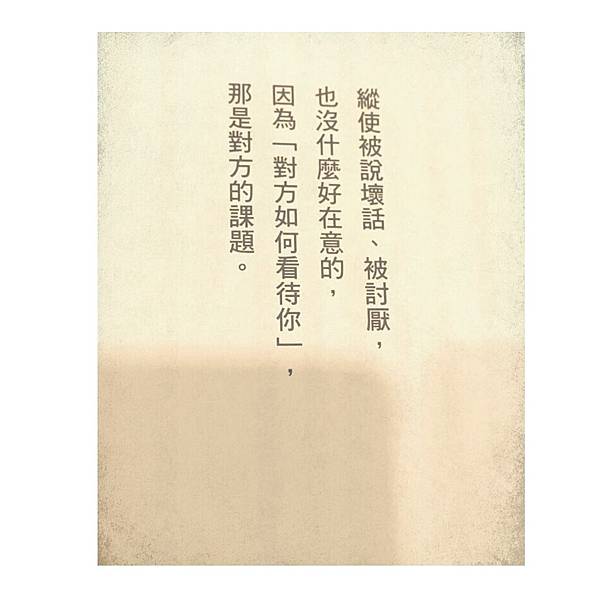 縱使被說壞話、被討厭，
也沒什麼好在意的，
因為「對方如何看待你」，
那是對方的課題。